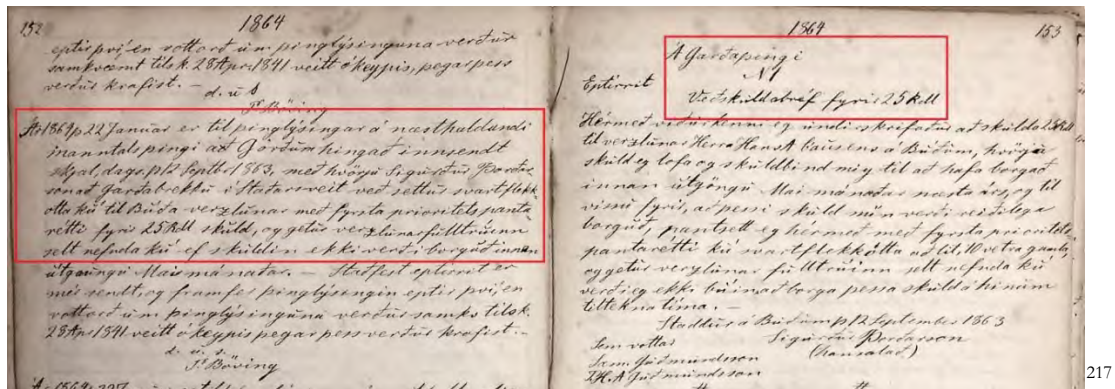 152
1864
eptir því en vottorð um þinglýsinguna verður
samkvæmt tilsk. 28 Apr. 1841 veitt ókeypis, þegar þess
verður krafist. –
d. u. s.
P. Böving
Ár 1864 þ 22 Januar er til þinglýsingar á næsthaldandi
manntalsþingi að Görðum hingað innsendt
skjal, dags. þ 12 Septbr 1863, með hvörju Sigurður Þórðar
son að Garðabrekku í Staðarsveit veðsettur svartflekk
ótta kú til Búða verzlunar með fyrsta prioritets panta
rétti fyrir 25 Rdl skuld, og getur verzlunarfulltrúinn
selt nefnda kú ef skuldin ekki verði borguð innan
útgaungu Maimánaðar. – Staðfest eptirrit er
mér sendt, og framfer þinglýsingin eptir því, en
vottorð um þinglýsinguna verður samkv tilsk.
28 Apr 1841 veitt ókeypis þegar þess verður krafist. –
d. u. s.
P. Böving
1864
153
Á Garðaþingi
N 1
Eptirrit
Veðskuldabréf fyrir 25 Rdl
Hérmeð viðurkenni eg undirskrifaður að skulda 25 Rdl
til verzlunar Herra Hans A Clausens á Búðum, hvörja
skuld eg lofa og skuldbind mig til að hafa borgað
innan útgöngu Mai mánaðar næsta árs, og til
vissu fyrir, að þessi skuld mín verði reiðilega
borguð, pantsett eg hérmeð með fyrsta prioritets
pantarétti kú svartflekkótta að lit, 10 vetra gamla,
og getur verzlunar fulltrúinn selt nefnda kú
verði eg ekki búinn að borga þessa skuld á hinum
tiltekna tíma. –
Staddur á Búðum þ 12 September 1863
Sigurður Þórðarson
(handsalað)
Sem vottar
Sam. Guðmundsson
H. A Guðmundsson
217